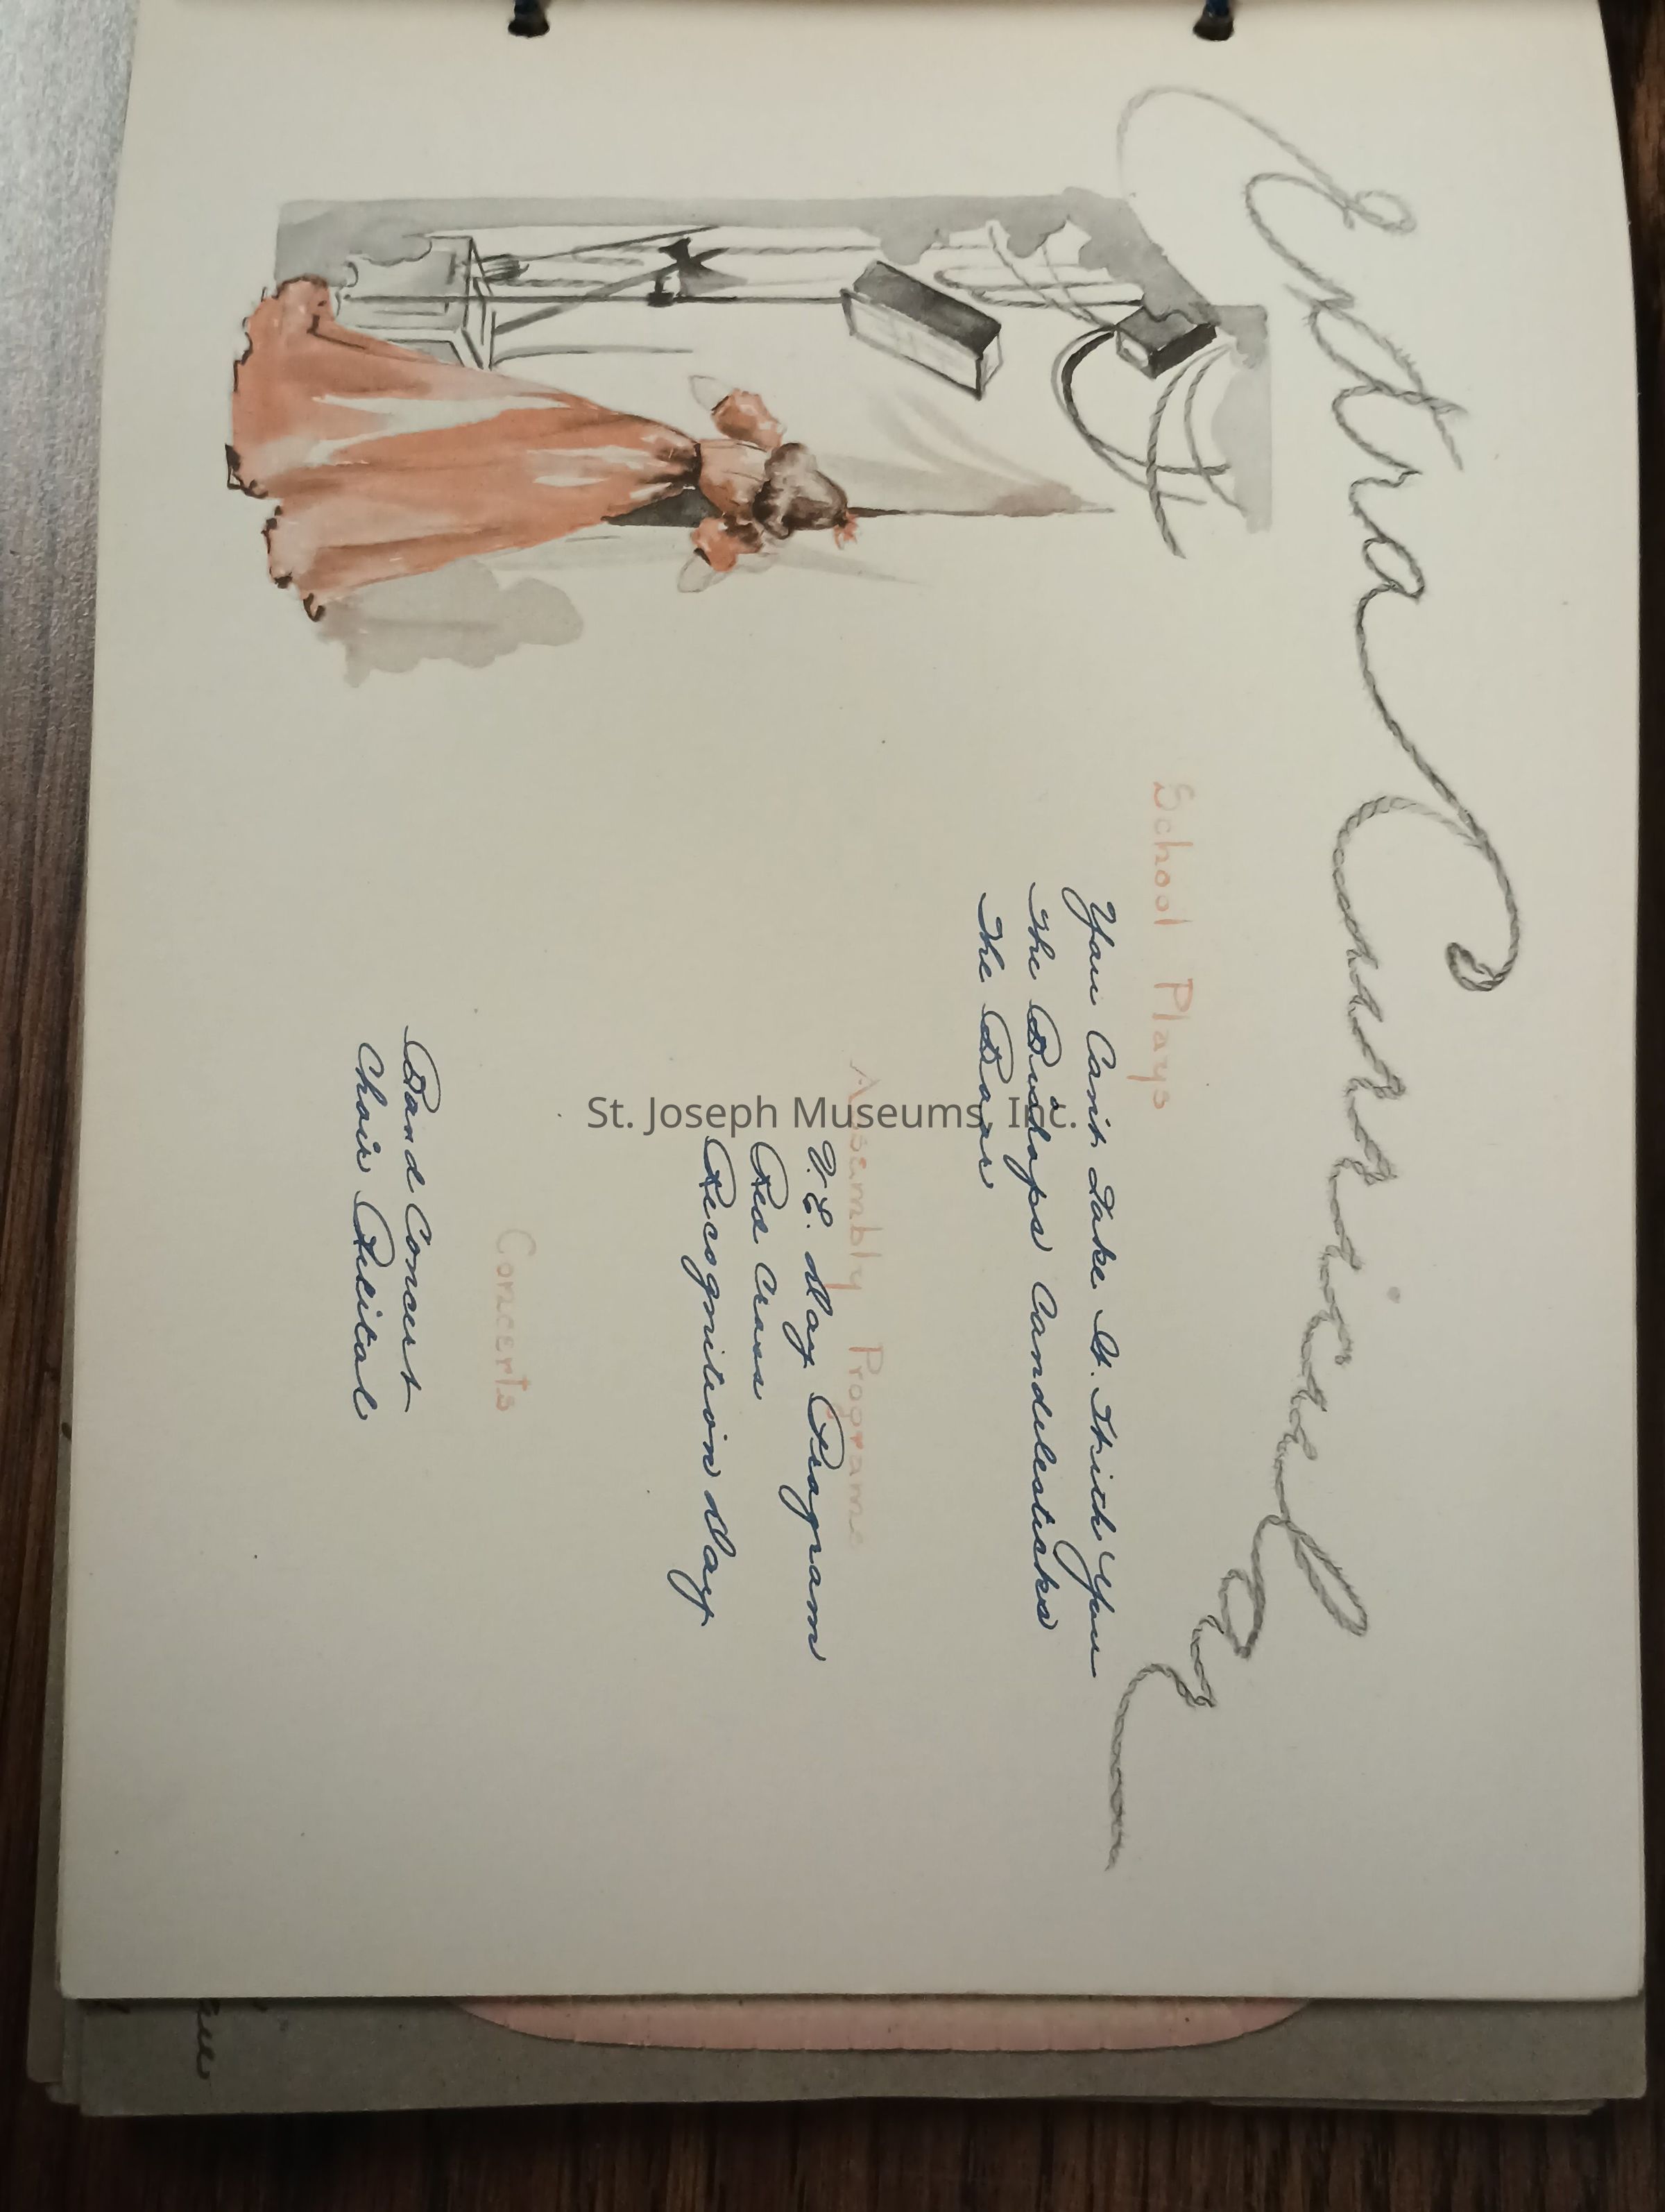 Extra Curricular
School Plays
You Can't Take It With You
The Bishops Candlesticks
The Boar
Assembly Programs
V.E. Day Program
Red Cross
Recognition Day
Concerts
Band Concert
Choir Recital
St. Joseph Museums, Inc.